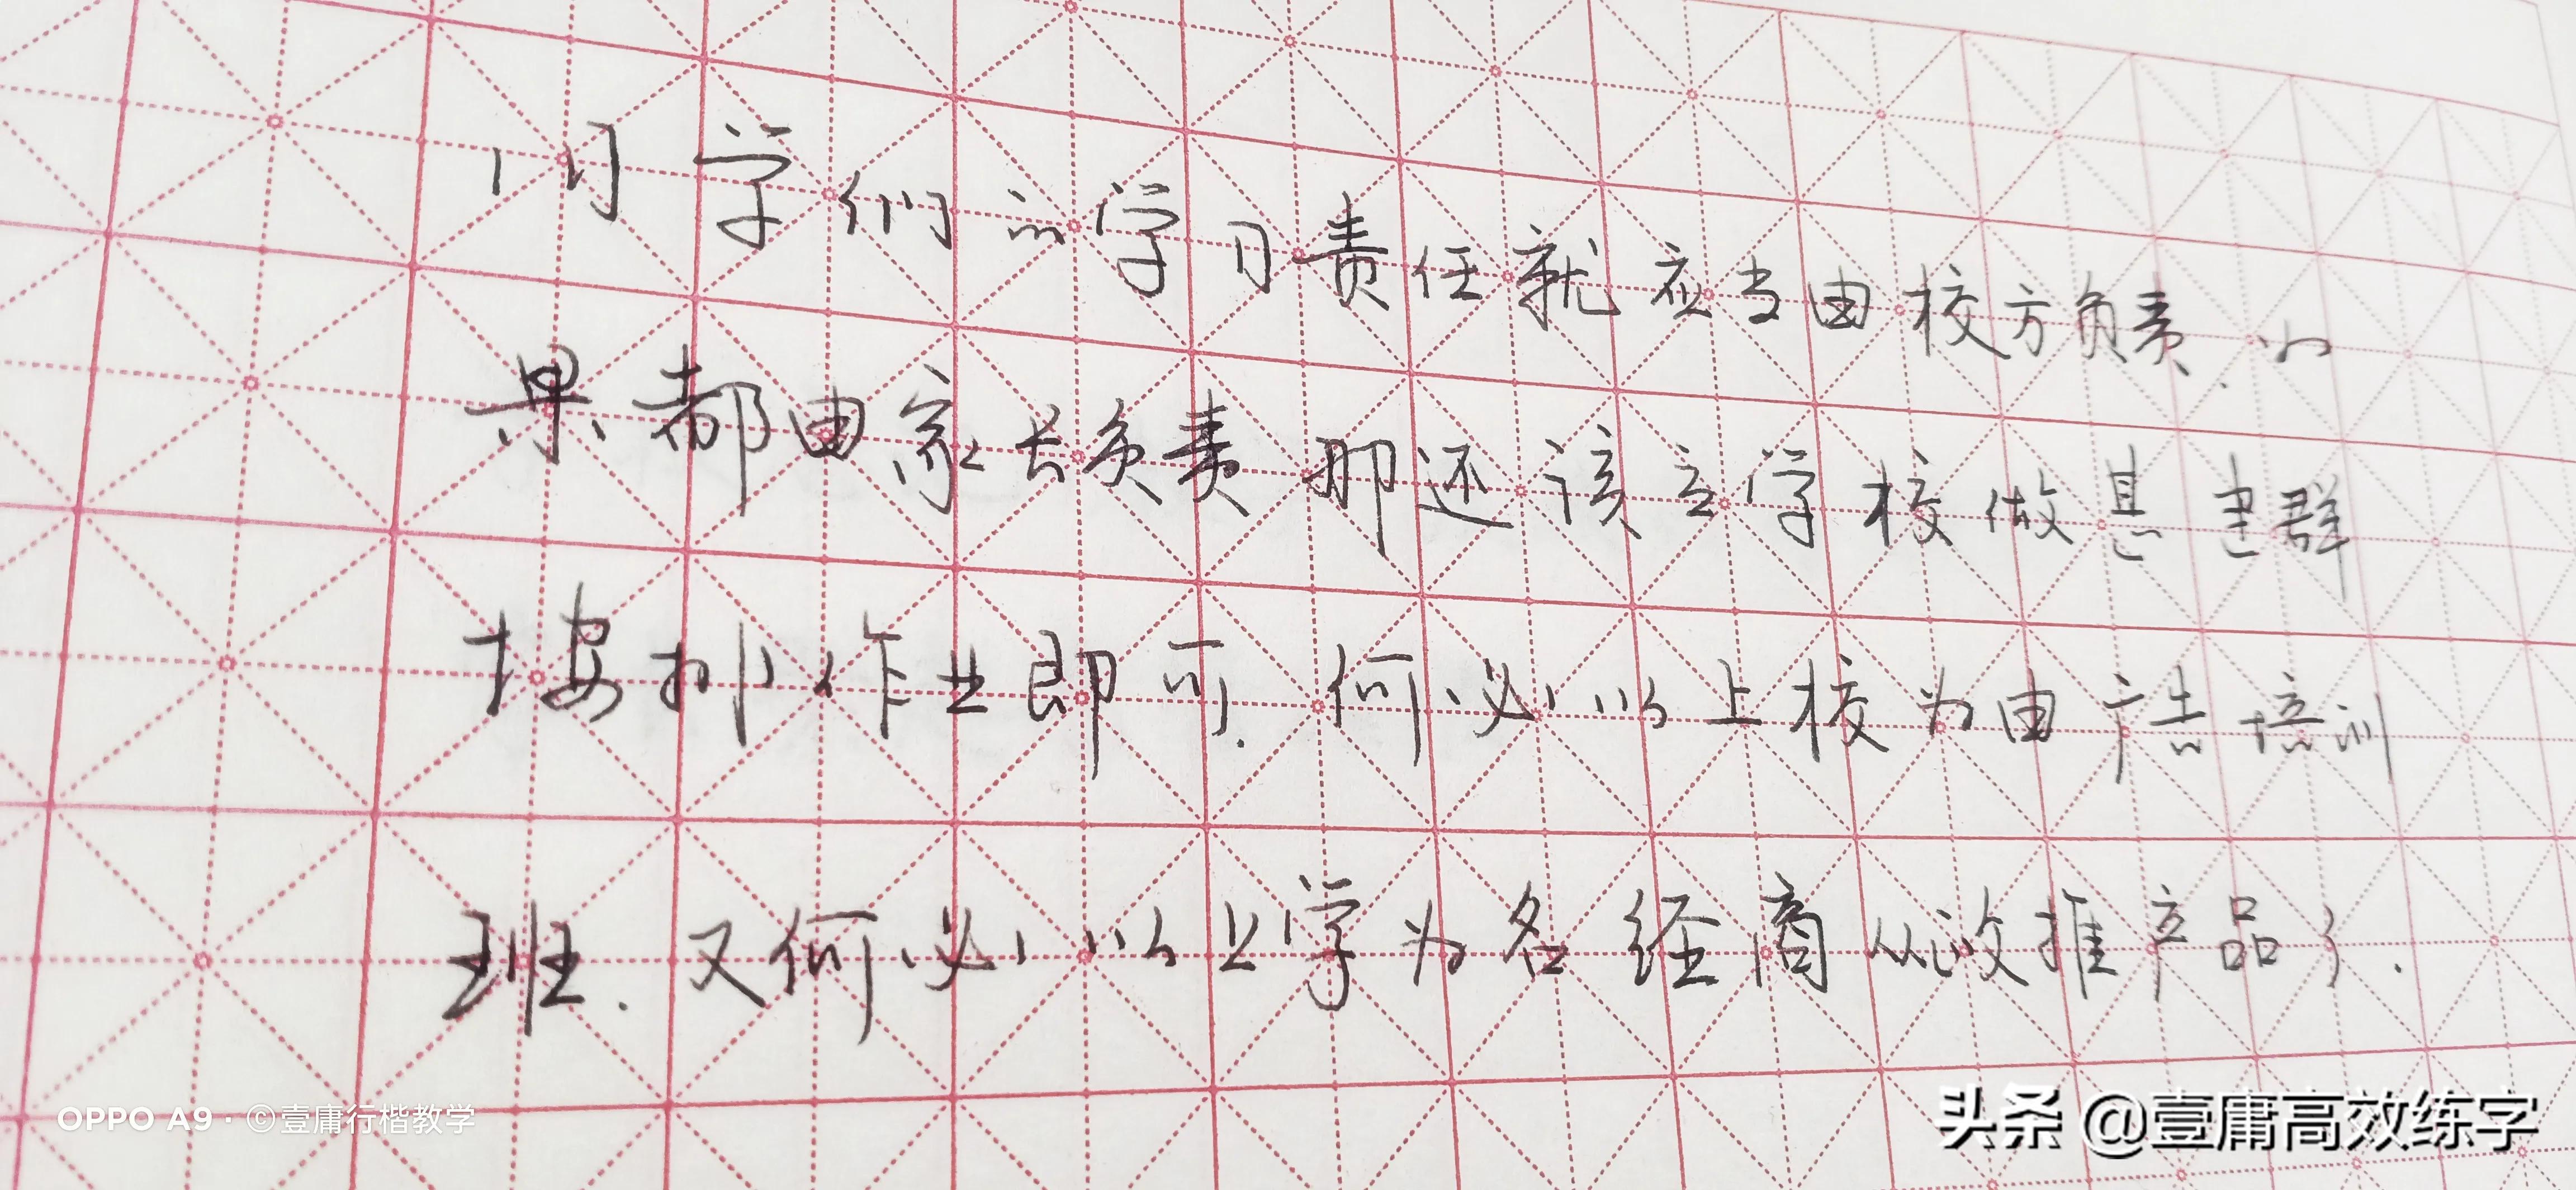 学们的学习责任就应当由校方负责.如
果都由家长负责那还该立学校做甚建群
按排作业即可.何必以上校为由广告培训
班.又何必以上学为名经商从政推产品了.
OPPO A9 · ©壹庸行楷教学
头条 @壹庸高效练字